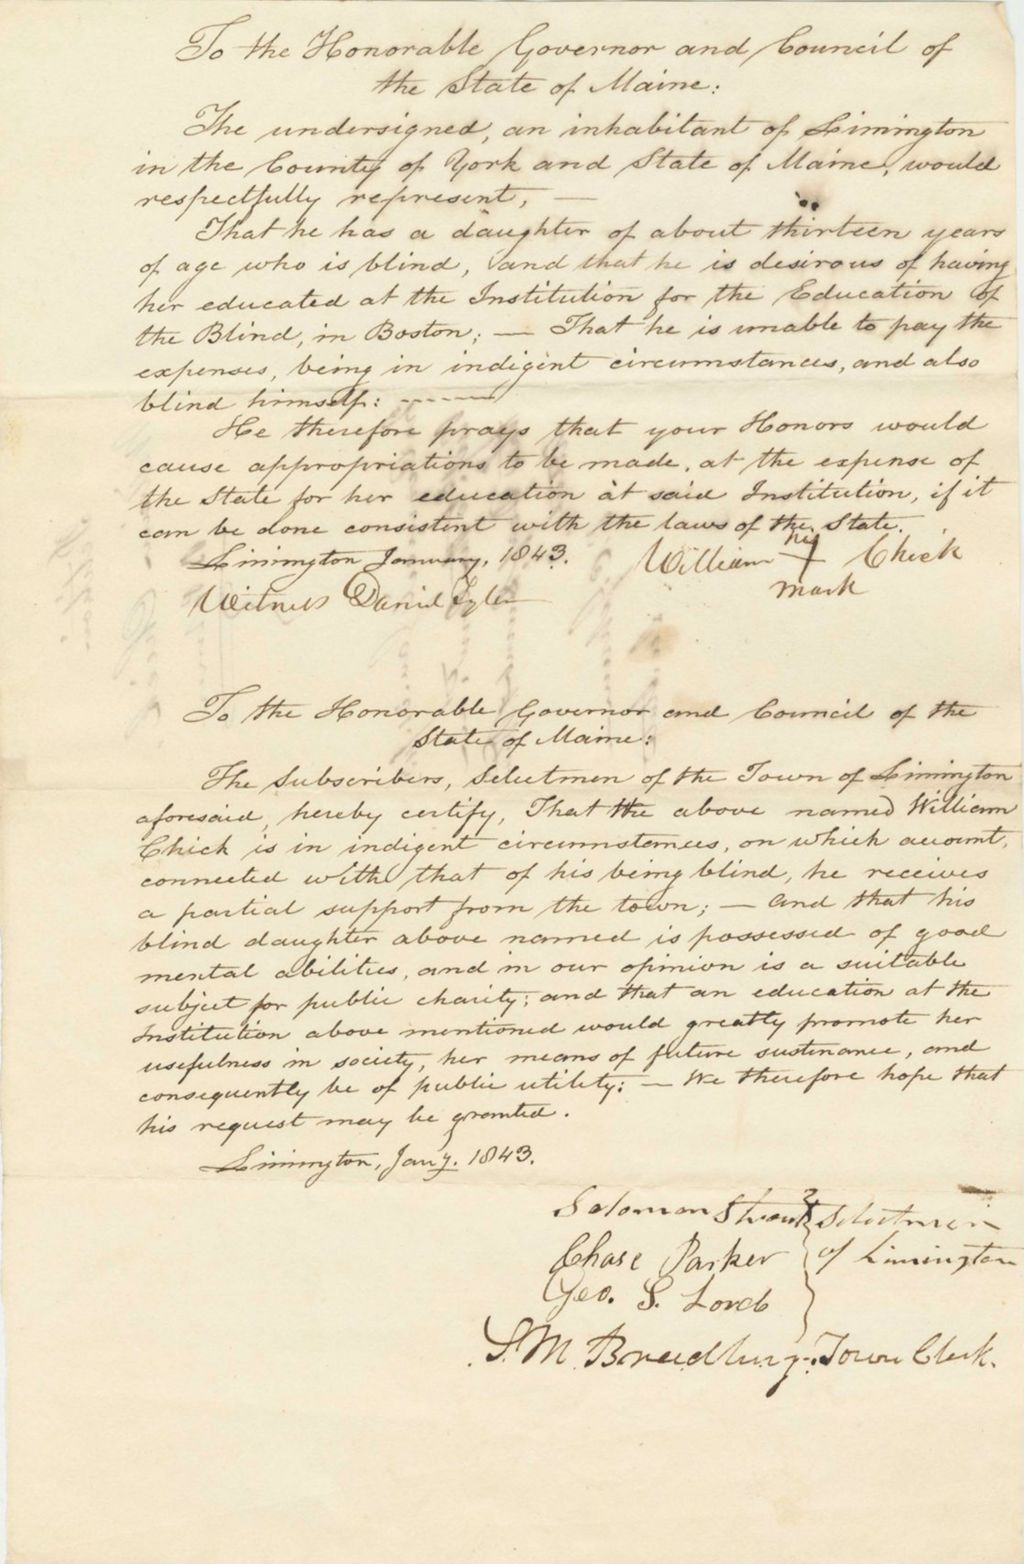 To the Honorable Governor and Council of
the State of Maine:
The undersigned, an inhabitant of Limington
in the County of York and State of Maine, would
respectfully represent, —
That he has a daughter of about thirteen years
of age who is blind, and that he is desirous of having
her educated at the Institution for the Education of
the Blind, in Boston; — That he is unable to pay the
expenses, being in indigent circumstances, and also
blind himself: -----
He therefore prays that your Honors would
cause appropriations to be made, at the expense of
the State for her education at said Institution, if it
can be done consistent with the laws of the State.
Limington January, 1843. William his X Chick
mark
Witness Daniel Tyler
To the Honorable Governor and Council of the
State of Maine:
The Subscribers, Selectmen of the Town of Limington
aforesaid, hereby certify, That the above named William
Chick is in indigent circumstances, on which account,
connected with that of his being blind, he receives
a partial support from the town; — and that his
blind daughter above named is possessed of good
mental abilities, and in our opinion is a suitable
subject for public charity; and that an education at the
Institution above mentioned would greatly promote her
usefulness in society, her means of future sustenance, and
consequently be of public utility: — We therefore hope that
his request may be granted.
Limington, Jany. 1843.
Solomon Strout Selectmen
Chase Parker of Limington
Geo. S. Lord
S. M. Bradbury. Town Clerk.